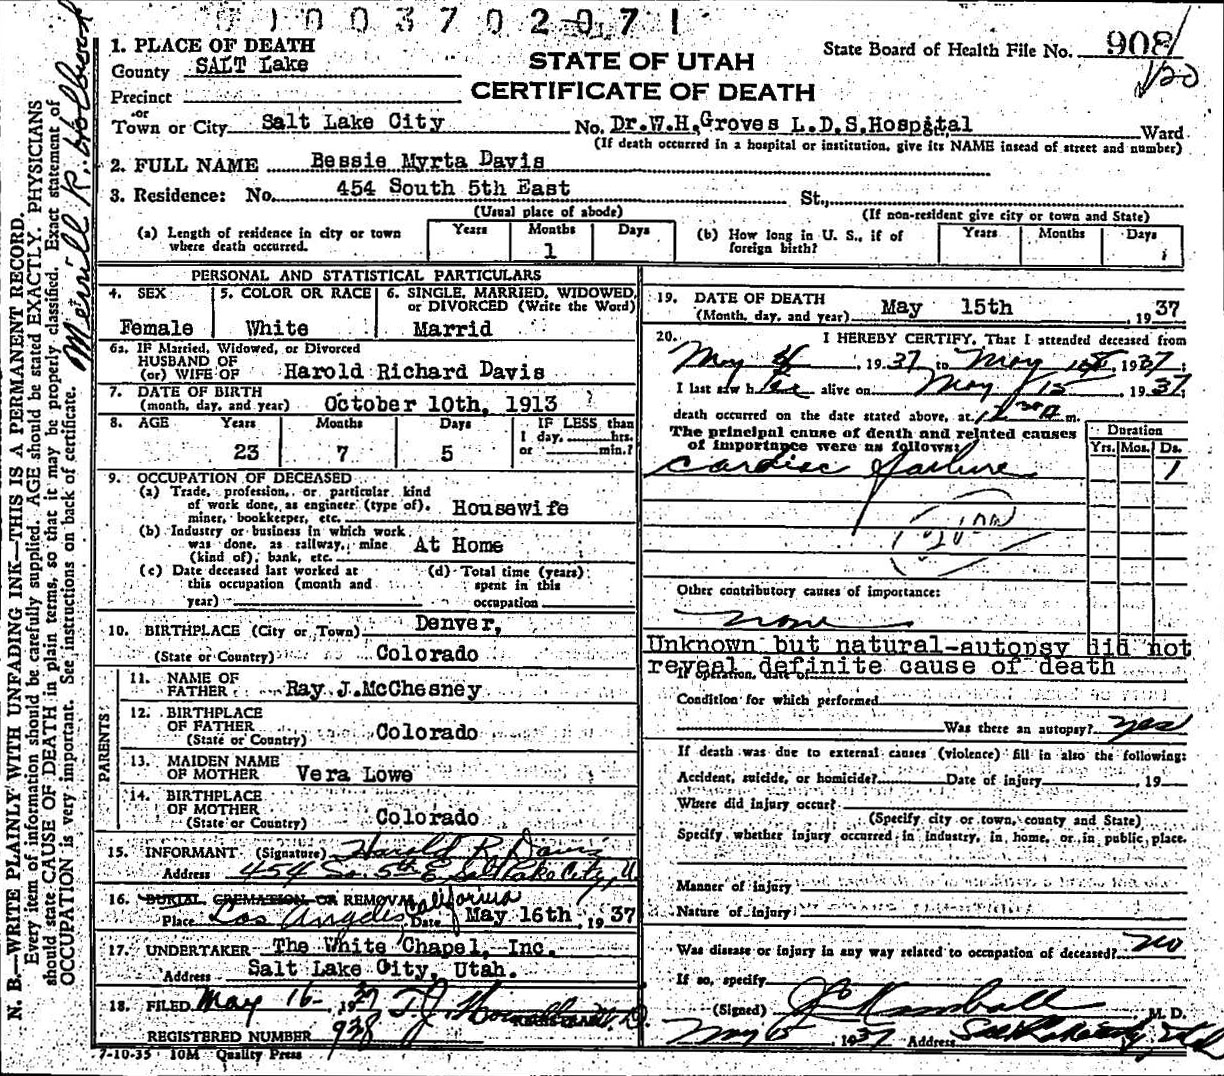 0100370 2071
1. PLACE OF DEATH
County SALT Lake
Precinct
or
Town or City Salt Lake City No. Dr.W.H.Groves L.D.S.Hospital Ward
(If death occurred in a hospital or institution, give its NAME insead of street and number)
STATE OF UTAH
CERTIFICATE OF DEATH
State Board of Health File No. 908
120
2. FULL NAME Bessie Myrta Davis
3. Residence: No. 454 South 5th East St.,
(Usual place of abode) (If non-resident give city or town and State)
(a) Length of residence in city or town where death occurred. Years Months 1 Days
(b) How long in U. S., if of foreign birth? Years Months Days
PERSONAL AND STATISTICAL PARTICULARS
4. SEX Female
5. COLOR OR RACE White
6. SINGLE, MARRIED, WIDOWED, or DIVORCED (Write the Word) Marrid
6a. IF Married, Widowed, or Divorced
HUSBAND OF
(or) WIFE OF Harold Richard Davis
7. DATE OF BIRTH
(month, day, and year) October 10th, 1913
8. AGE Years 23 Months 7 Days 5 IF LESS than 1 day, hrs. or min.?
9. OCCUPATION OF DECEASED
(a) Trade, profession, or particular kind
of work done, as engineer (type of),
miner, bookkeeper, etc. Housewife
(b) Industry or business in which work
was done, as railway, mine
(kind of); bank, etc. At Home
(c) Date deceased last worked at
this occupation (month and
year)
(d) Total time (years)
spent in this
occupation
10. BIRTHPLACE (City or Town) Denver,
(State or Country) Colorado
PARENTS
11. NAME OF
FATHER Ray J.McChesney
12. BIRTHPLACE
OF FATHER
(State or Country) Colorado
13. MAIDEN NAME
OF MOTHER Vera Lowe
14. BIRTHPLACE
OF MOTHER
(State or Country) Colorado
15. INFORMANT (Signature) Harold R Davis
Address 454 So. 5th E Salt Lake City, U.
16. BURIAL, CREMATION, OR REMOVAL California
Place Los Angeles Date May 16th, 1937
17. UNDERTAKER The White Chapel, Inc.
Address Salt Lake City, Utah.
18. FILED May 16 1937 T.J.
REGISTRAR
REGISTERED NUMBER 938
7-10-35 10M Quality Press
19. DATE OF DEATH
(Month, day, and year) May 15th, 1937
20. I HEREBY CERTIFY, That I attended deceased from
May 1937 to May 15, 1937;
I last saw her alive on May 15, 1937;
death occurred on the date stated above, at 12 30 A m.
The principal cause of death and related causes
of importance were as follows:
Duration
Yrs. Mos. Ds.
Cardiac failure 1
200
Other contributory causes of importance:
none
Unknown but natural-autopsy did not
reveal definite cause of death
If operation, date of
Condition for which performed
Was there an autopsy? yes
If death was due to external causes (violence) fill in also the following:
Accident, suicide, or homicide? Date of injury , 19
Where did injury occur?
(Specify city or town, county and State)
Specify whether injury occurred in industry, in home, or in public place.
Manner of injury
Nature of injury
Was disease or injury in any way related to occupation of deceased? no
If so, specify
(Signed) Kimball M. D.
May 15 1937 Address Salt Lake City, Utah
N. B.—WRITE PLAINLY WITH UNFADING INK—THIS IS A PERMANENT RECORD.
Every item of information should be carefully supplied. AGE should be stated EXACTLY. PHYSICIANS
should state CAUSE OF DEATH in plain terms, so that it may be properly classified. Exact statement of
OCCUPATION is very important. See instructions on back of certificate.
Merrill R. Holbrook